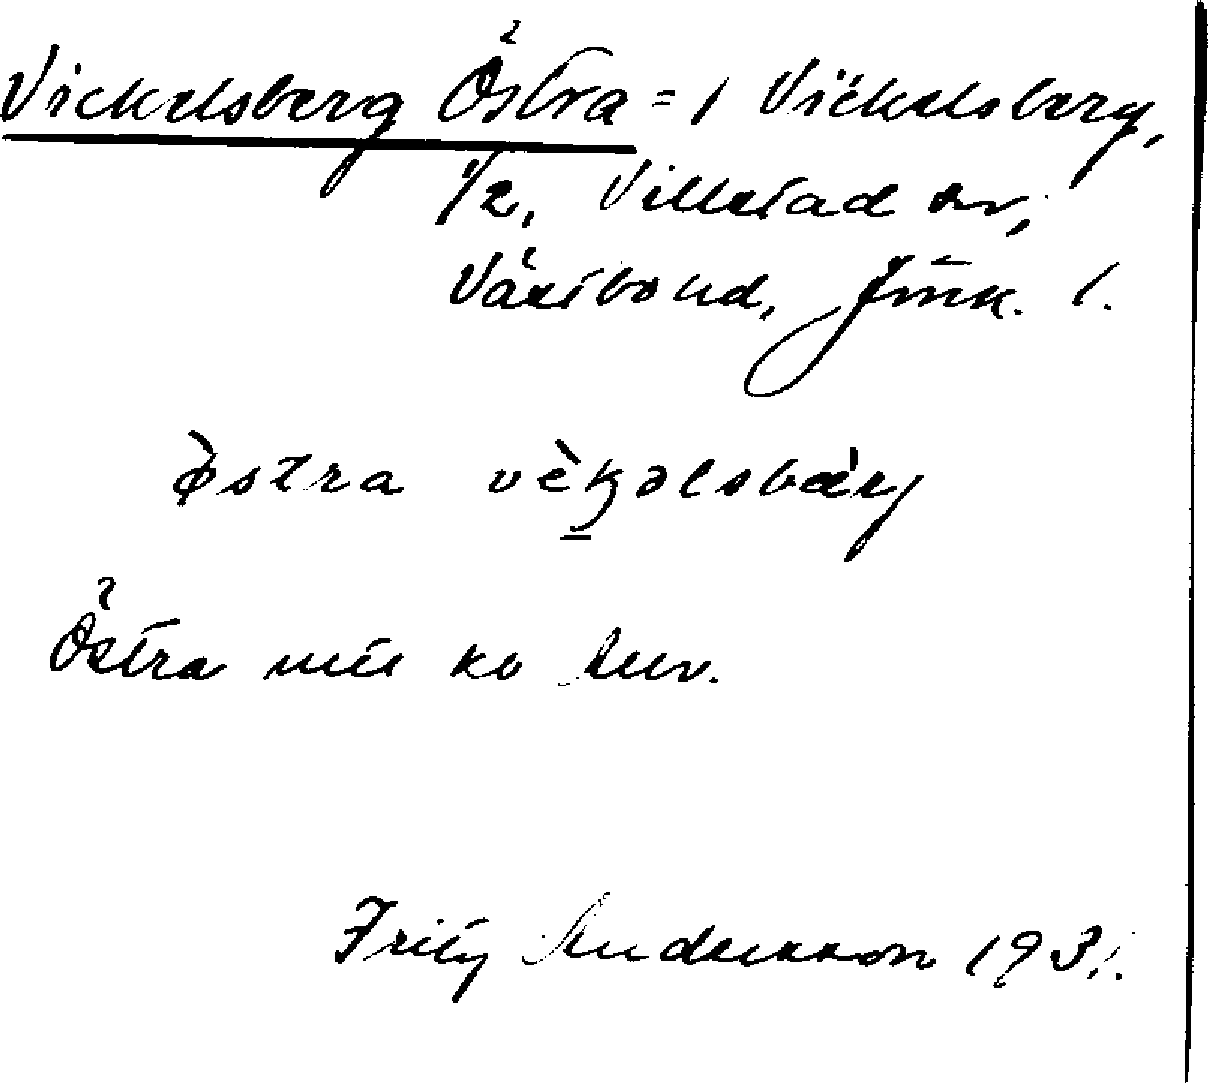 Vickelsberg Östra = 1 Vickelsberg,
1/2, Villstad sn,
Västbo hd, Jönk. l.
östra vèkəlsbær̀j
Östra
Fritz Andersson 1931.